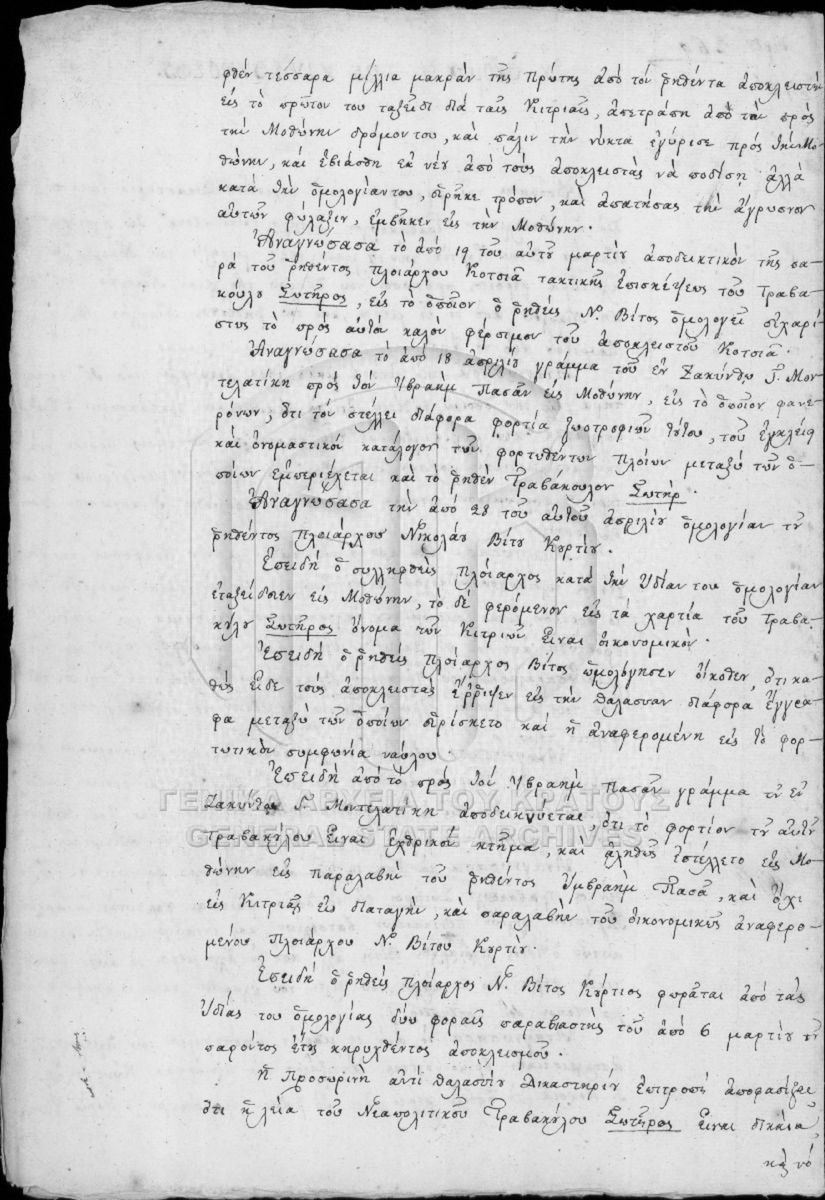 φθέν τέσσαρα μίλλια μακράν τῆς Πρώτης ἀπό τόν ῥηθέντα ἀποκλειστήν
εἰς τό πρῶτον του ταξεῖδι διά ταῖς Κιτριαῖς, ἀπετράπη ἀπό τόν πρός
τήν Μοθώνην δρόμον του, καί πάλιν τήν νύκτα ἐγύρισε πρός τήν Μο-
θώνην, καί ἐβιάσθη ἐκ νέου ἀπό τούς ἀποκλειστάς νά ποδίσῃ· ἀλλά
κατά τήν ὁμολογίαν του, εὕρηκε τρόπον, καί ἀπατήσας τήν ἄγρυπνον
αὐτῶν φύλαξιν, ἐμβῆκεν εἰς τήν Μοθώνην.
Ἀναγνώσασα τό ἀπό 19 τοῦ αὐτοῦ μαρτίου ἀποδεικτικόν τῆς πα-
ρά τοῦ ῥηθέντος πλοιάρχου Κοτσιᾶ τακτικῆς ἐπισκέψεως τοῦ Τραβα-
κούλου Σωτῆρος, εἰς τό ὁποῖον ὁ ῥηθείς Ν. Βίτος ὁμολογεῖ εὐχαρί-
στως τό πρός αὐτόν καλόν φέρσιμον τοῦ ἀποκλειστοῦ Κοτσιᾶ.
Ἀναγνώσασα τό ἀπό 18 ἀπριλίου γράμμα τοῦ ἐν Ζακύνθῳ Γ. Μον-
τελατίκη πρός τόν Ἰβραήμ Πασᾶν εἰς Μοθώνην, εἰς τό ὁποῖον φανε-
ρόνων, ὅτι τόν στέλλει διάφορα φορτία ζωοτροφιῶν, τοῦ ἐγκλείει
καί ὀνομαστικόν κατάλογον τῶν φορτωθέντων πλοίων μεταξύ τῶν ὁ-
ποίων ἐμπεριέχεται καί τό ῥηθέν Τραβάκουλον Σωτήρ.
Ἀναγνώσασα τήν ἀπό 28 τοῦ αὐτοῦ ἀπριλίου ὁμολογίαν τοῦ
ῥηθέντος πλοιάρχου Νικολάου Βίτου Κυρτίου.
Ἐπειδή ὁ συλληφθείς πλοίαρχος κατά τήν ἰδίαν του ὁμολογίαν
ἐταξείδευεν εἰς Μοθώνην, τό δέ φερόμενον εἰς τά χαρτία τοῦ Τραβα-
κούλου Σωτῆρος ὄνομα τῶν Κιτριῶν εἶναι οἰκονομικόν.
Ἐπειδή ὁ ῥηθείς πλοίαρχος Βίτος ὡμολόγησεν οἴκοθεν, ὅτι κα-
θώς εἶδε τούς ἀποκλειστάς ἔῤῥιψεν εἰς τήν θάλασσαν διάφορα ἔγγρα-
φα μεταξύ τῶν ὁποίων εὑρίσκετο καί ἡ ἀναφερομένη εἰς τό φορ-
τωτικόν συμφωνία ναύλου.
Ἐπειδή ἀπό τό πρός τόν Ἰβραήμ Πασᾶν γράμμα τοῦ ἐν
Ζακύνθῳ Γ. Μοντελατίκη ἀποδεικνύεται, ὅτι τό φορτίον τοῦ αὐτοῦ
Τραβακούλου εἶναι ἐχθρικόν κτῆμα, καί ἀληθῶς ἐστέλλετο εἰς Μο-
θώνην εἰς παραλαβήν τοῦ ῥηθέντος Ἰμβραήμ Πασᾶ, καί ὄχι
εἰς Κιτριαῖς εἰς διαταγήν, καί παραλαβήν τοῦ οἰκονομικῶς ἀναφερο-
μένου πλοιάρχου Ν. Βίτου Κυρτίου.
Ἐπειδή ὁ ῥηθείς πλοίαρχος Ν. Βίτος Κύρτιος φωρᾶται ἀπό τάς
ἰδίας του ὁμολογίας δύω φοραῖς παραβιαστής τοῦ ἀπό 6 μαρτίου τοῦ
παρόντος ἔτους κηρυχθέντος ἀποκλεισμοῦ.
Ἡ Προσωρινή ἀντί θαλασσίου Δικαστηρίου ἐπιτροπή ἀποφασίζει
ὅτι ἡ λεία τοῦ Νεαπολιτικοῦ Τραβακούλου Σωτῆρος εἶναι δικαία,
καί νό
ΓΕΝΙΚΑ ΑΡΧΕΙΑ ΤΟΥ ΚΡΑΤΟΥΣ
GENERAL STATE ARCHIVES